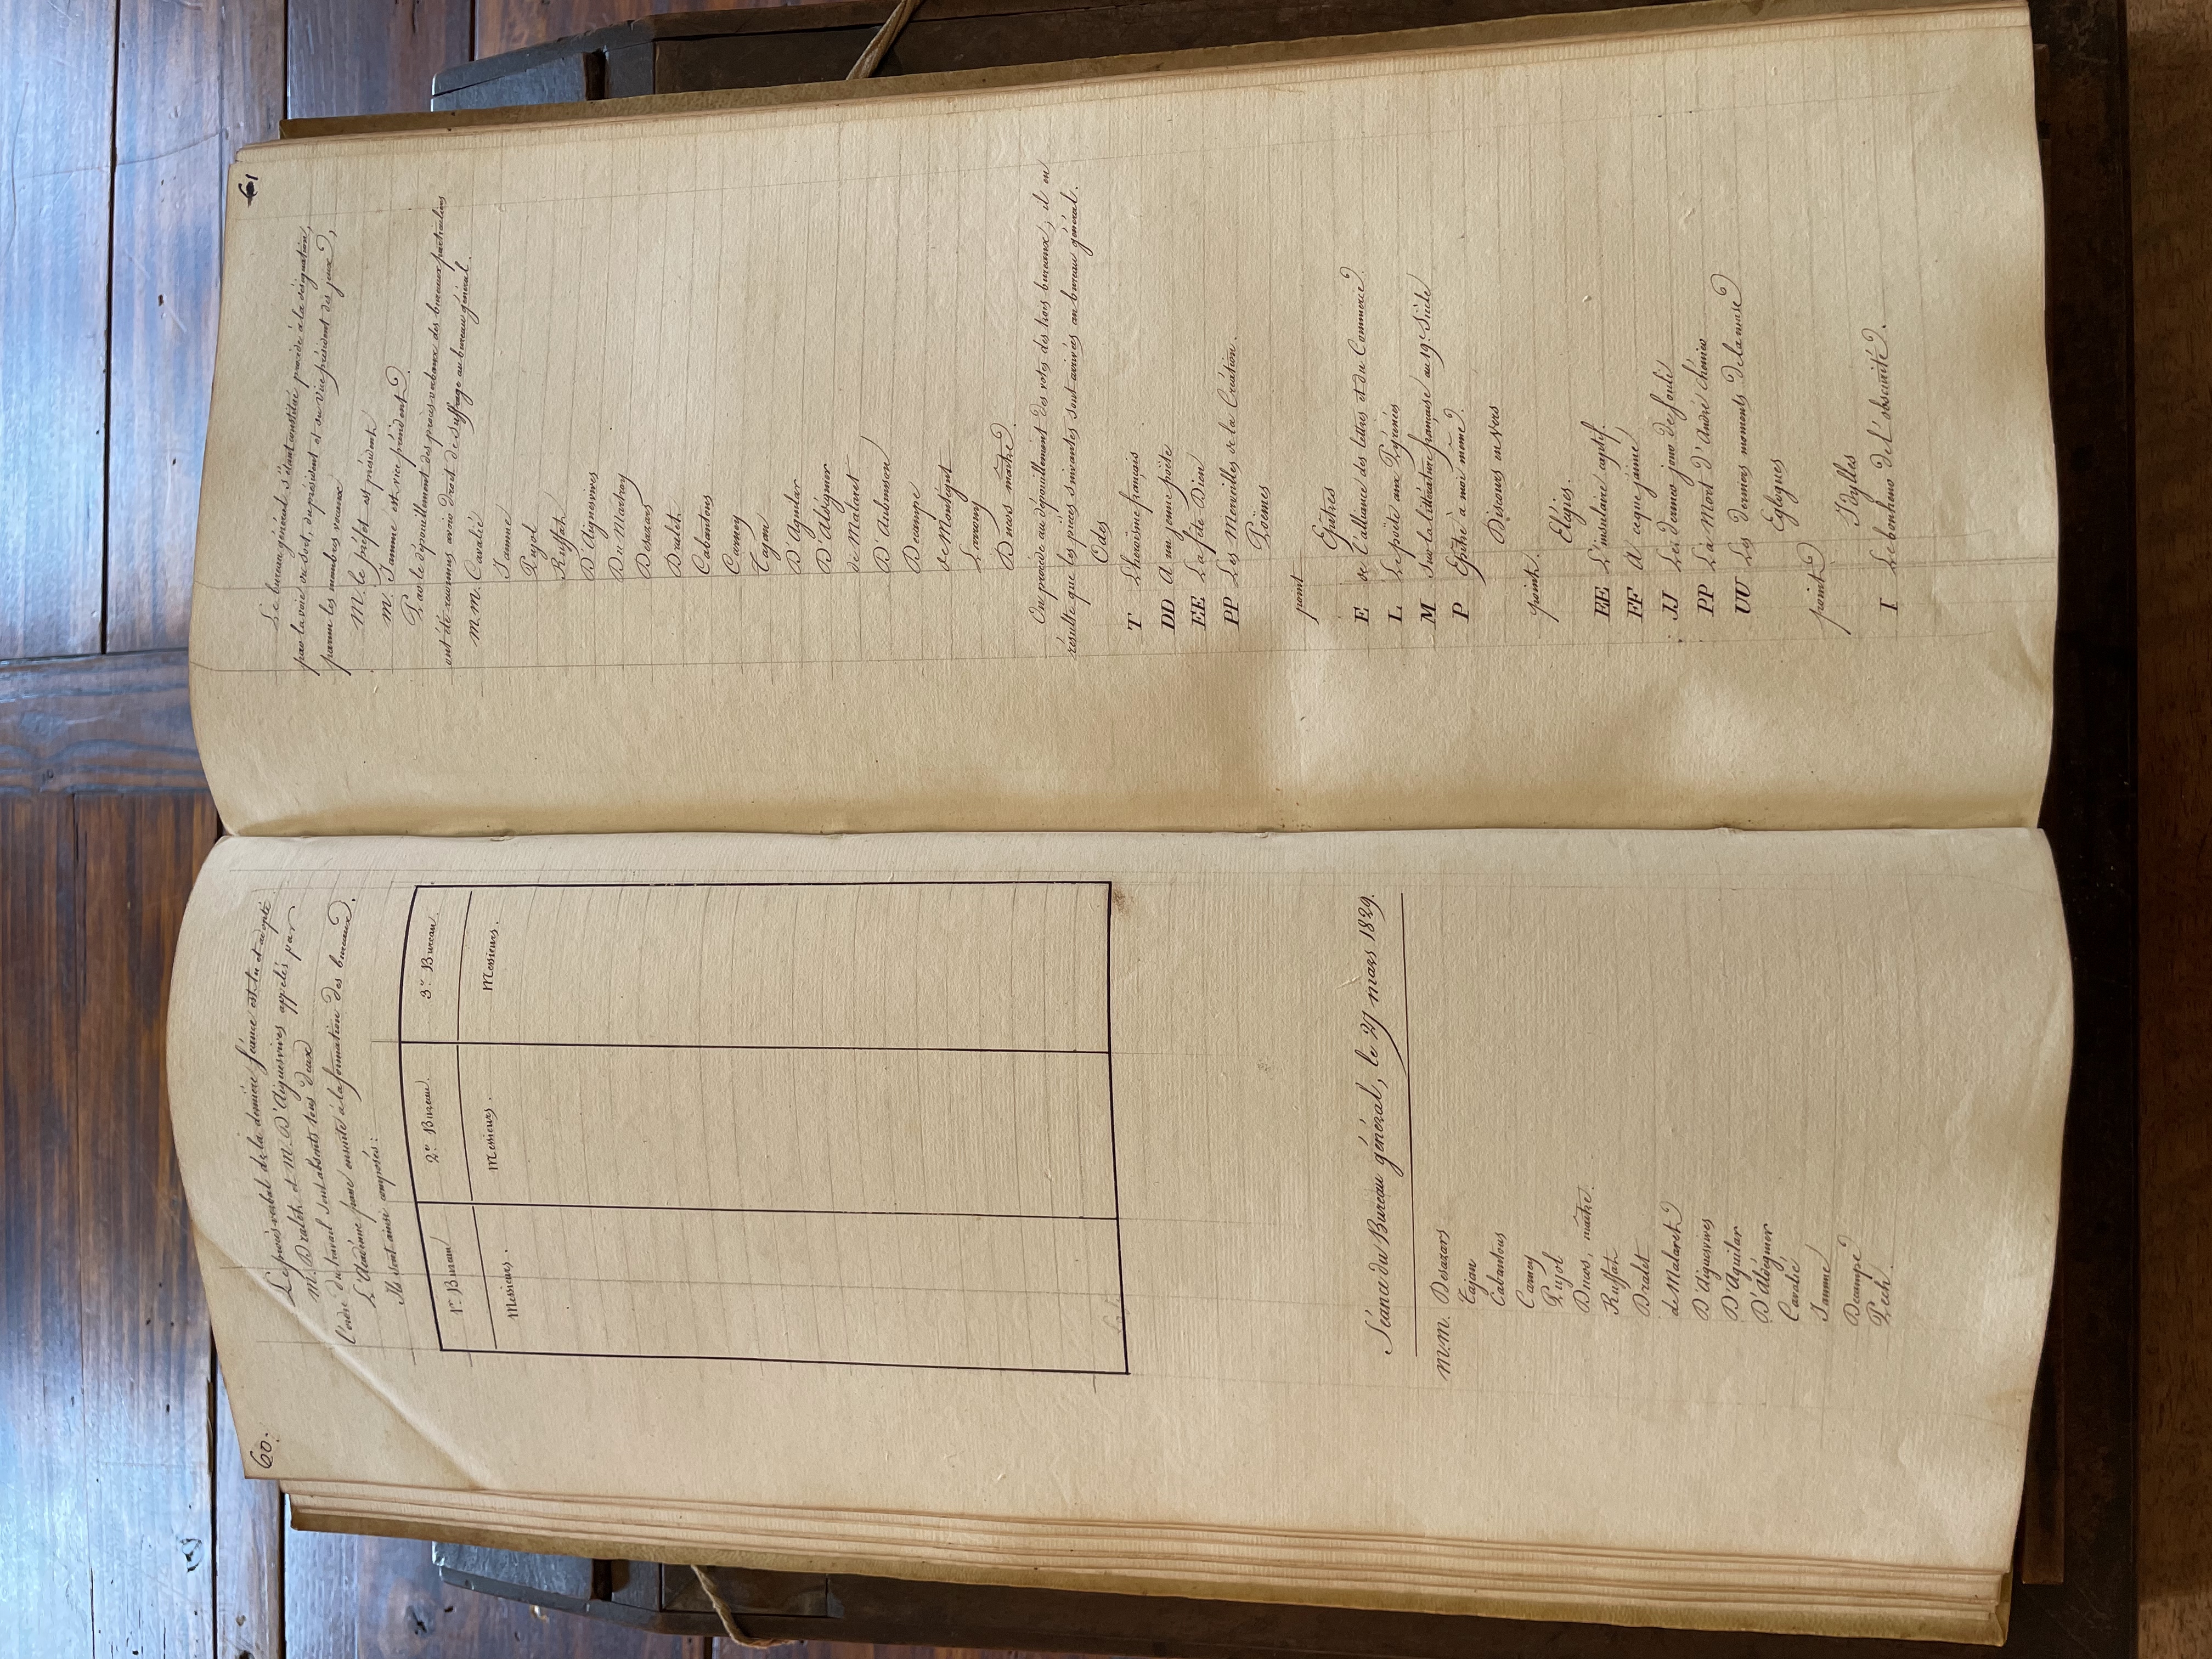 60.
Le procès-verbal de la dernière séance est lu et adopté
M. Dralet et M. D'Aiguesvives appelés par
l'ordre du travail sont absents tous deux
L'Académie passe ensuite à la formation des bureaux.
Ils sont ainsi composés:
1er Bureau 2e Bureau. 3e Bureau.
Messieurs. Messieurs. Messieurs.
Séance du Bureau général, le 27 mars 1829.
M.M. Desazars
Tajan
Cabantous
Carney
Pujol
Ducos, maître.
Ruffat
Dralet
de Malaret
D'Aiguesvives
D'Aguilar
D'Aldéguier
Cavalié
Jamme
Decampe
Pech.
61
Le bureau général s'étant constitué procède à la désignation,
par la voie du sort, du président et du vice président des jeux,
parmi les membres
M. le préfet est président
M. Jamme est vice président.
Par le dépouillement des procès-verbaux des bureaux particuliers
ont été reconnus avoir droit de suffrage au bureau général.
M.M. Cavalié
Jamme
Pujol
Ruffat
D'Aiguesvives
Du Martroy
Desazars
Dralet
Cabantous
Carney
Tajan
D'Aguilar
D'Aldéguier
de Malaret
D'Aubuisson
Decampe
de Montégut
Lavromy
Ducos maître.
On procède au dépouillement des votes des trois bureaux; il en
résulte que les pièces suivantes sont arrivées au bureau général.
Odes
T L'héroïsme français
DD A un jeune poëte
EE La fête-Dieu
PP Les Merveilles de la Création.
Poëmes
point
Epîtres
E de l'alliance des lettres et du Commerce.
L Le poëte aux Pyrénées
M Sur la littérature française au 19e Siècle
P Epître à moi même.
Discours en vers
point.
Elégies.
EE L'insulaire captif.
FF A ce que j'aime
JJ Les derniers jours de fouli
PP La Mort d'André Chénier
UU Les derniers moments de la muse
Eglogues
point
Idylles
I Le bonheur de l'obscurité.